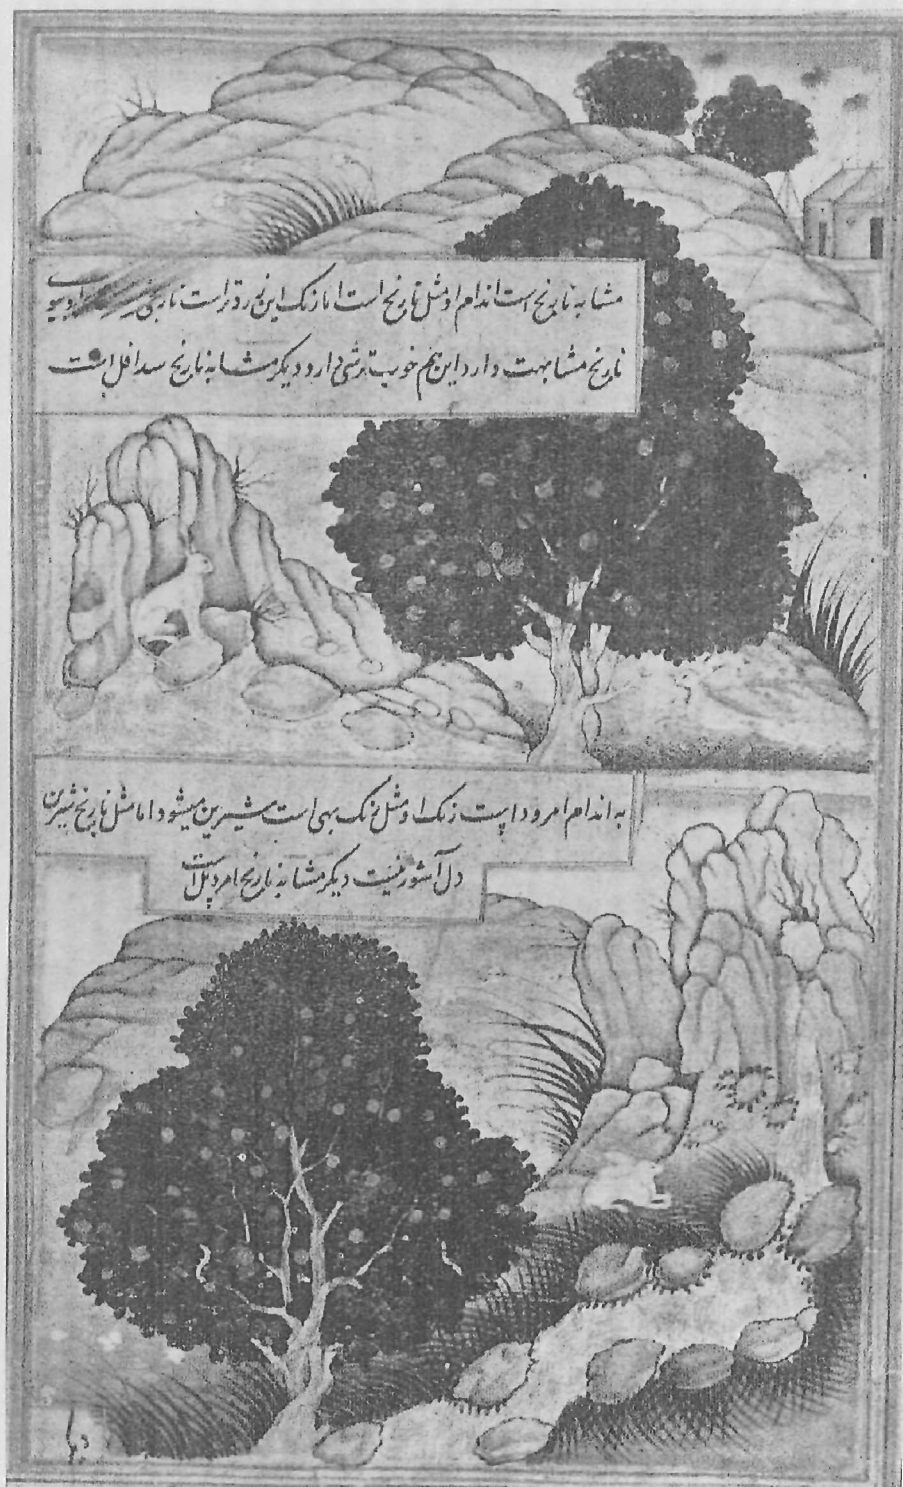 مشابه نارنج است اندام او مثل نارنج است اما رنک این زرد تر است نارنج بوی
نارنج مشابهت دارد این هم خوب ترشی دارد دیکر مشابه نارنج سدافل است
به اندام امرود است رنک او مثل رنک بهی است شیرین میشود اما مثل نارنج شیرین
دل آشور نیست دیکر مشابه نارنج امرد پل است